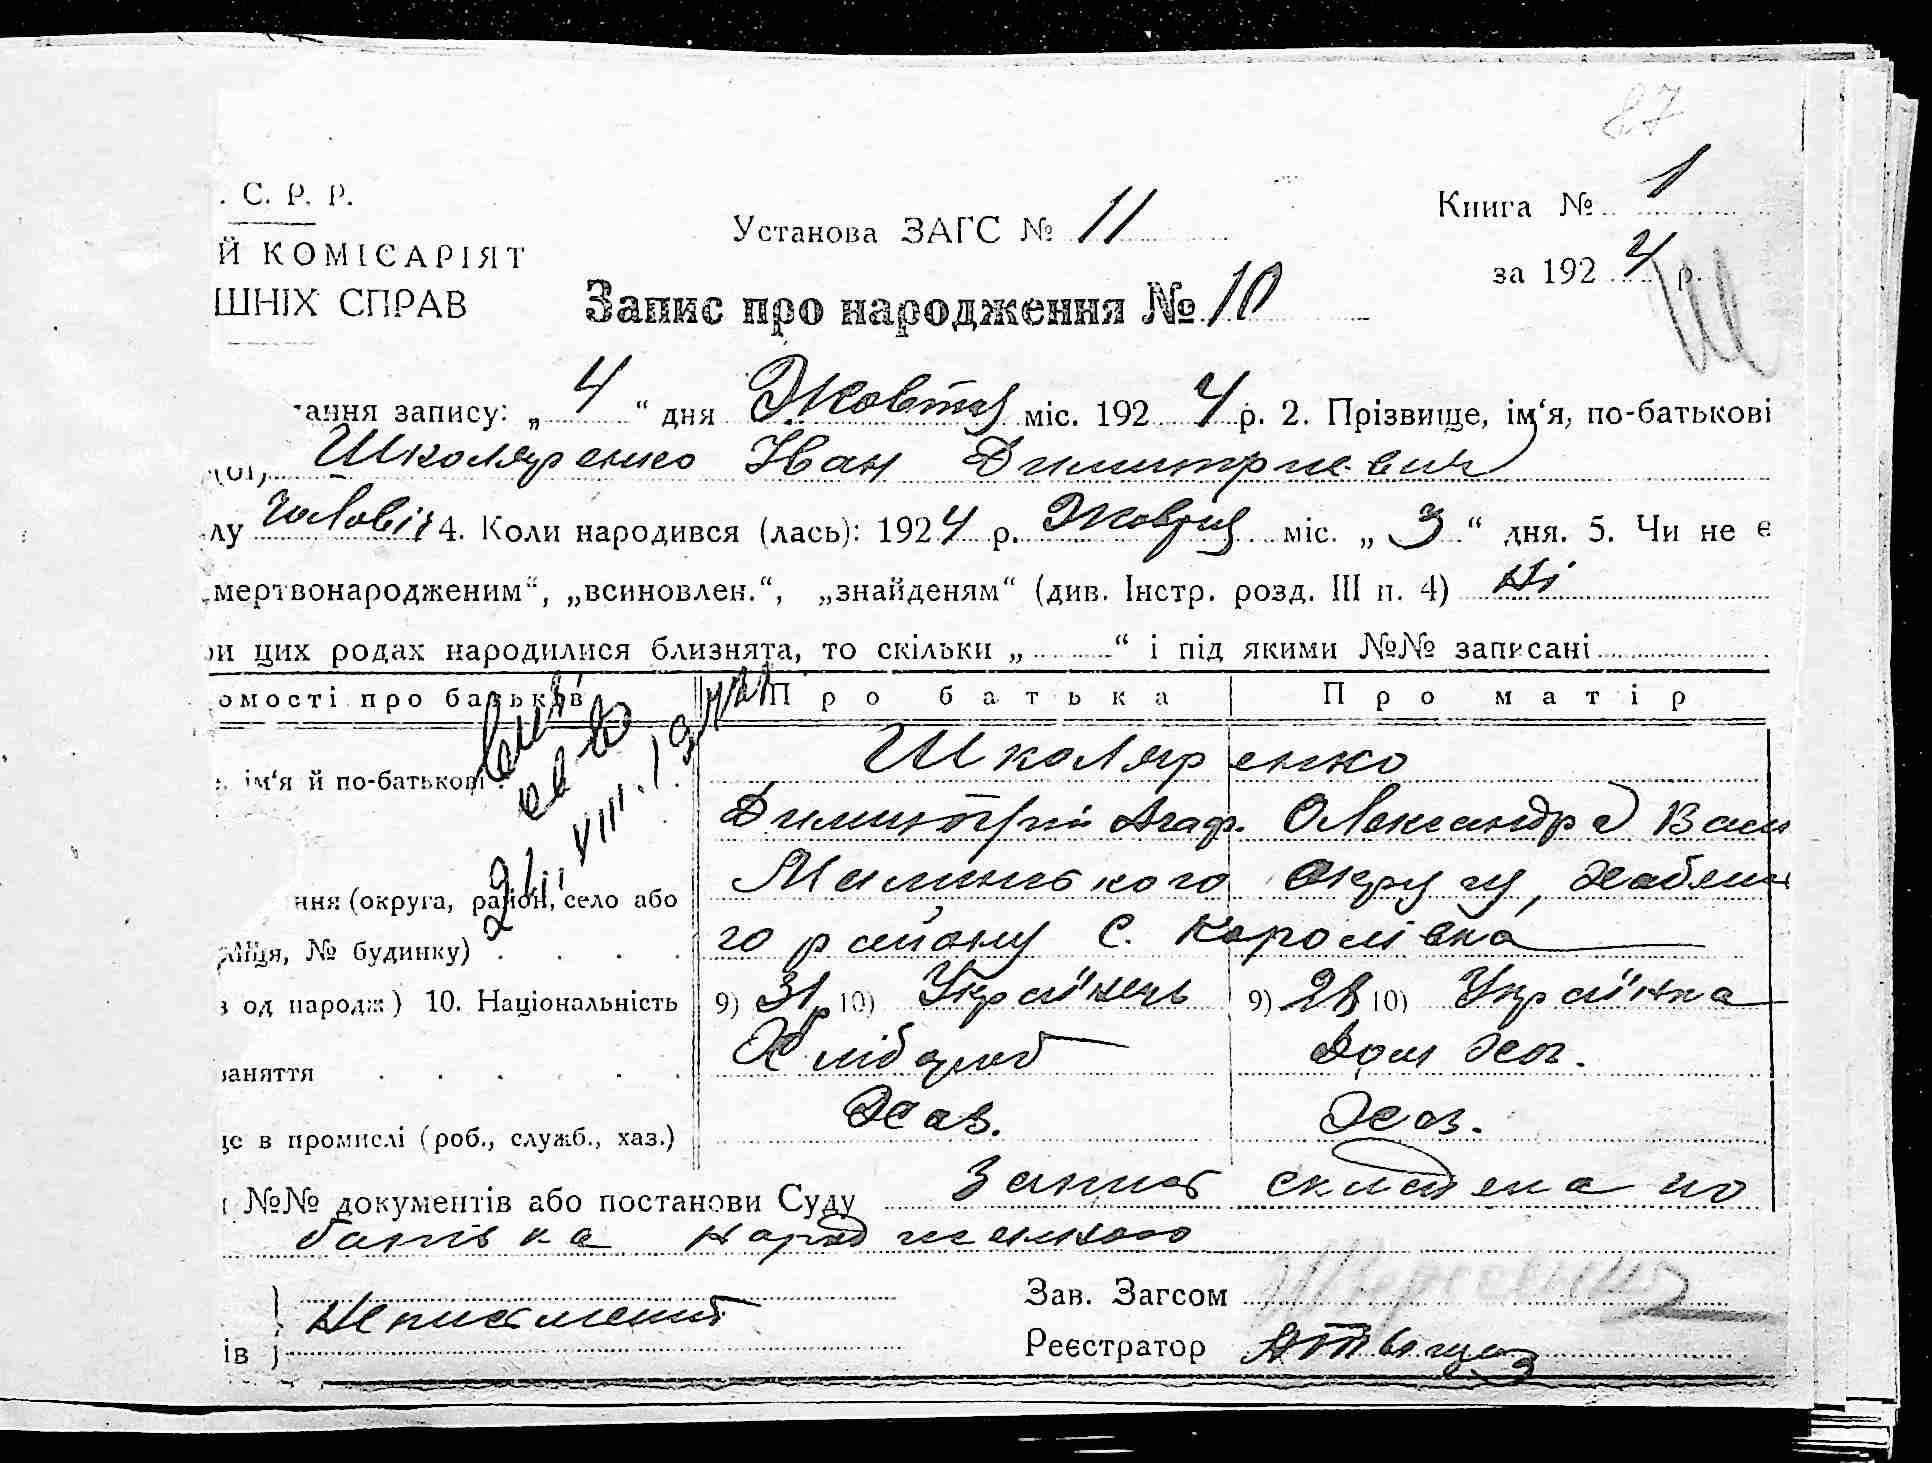 87
. С. Р. Р.
Установа ЗАГС № 11
Книга № 1
Й КОМІСАРІЯТ
за 1924 р.
ШНІХ СПРАВ
Запис про народження № 10
Ш
дання запису: „4“ дня Жовтня міс. 1924 р. 2. Прізвище, ім‘я, по-батькові
Школяренко Іван Димитриевич
лу Чоловіч 4. Коли народився (лась): 1924 р. Жовтня міс. „3“ дня. 5. Чи не є
„мертвонародженим“, „всиновлен.“, „знайденям“ (див. Інстр. розд. III п. 4) Ні
ри цих родах народилися близнята, то скільки „ “ і під якими №№ записані
омості про батьків Про батька Про матір
Школяренко
, ім‘я й по-батькові .
Димитрій Агаф. Олександра Васи
ння (округа, район, село або
Малинського округу, Хабенсь
иця, № будинку) . . . .
го району С. Королівка
в од народж) 10. Національність 9) 31 10) Українець 9) 28 10) Українка
заняття . . . . .
Хлібороб Дом Хоз.
це в промислі (роб., служб., хаз.)
Хаз. Хаз.
№№ документів або постанови Суду Запис складена по
батька
Неписьмений
Зав. Загсом
ів
Реєстратор
21. VIII. 19